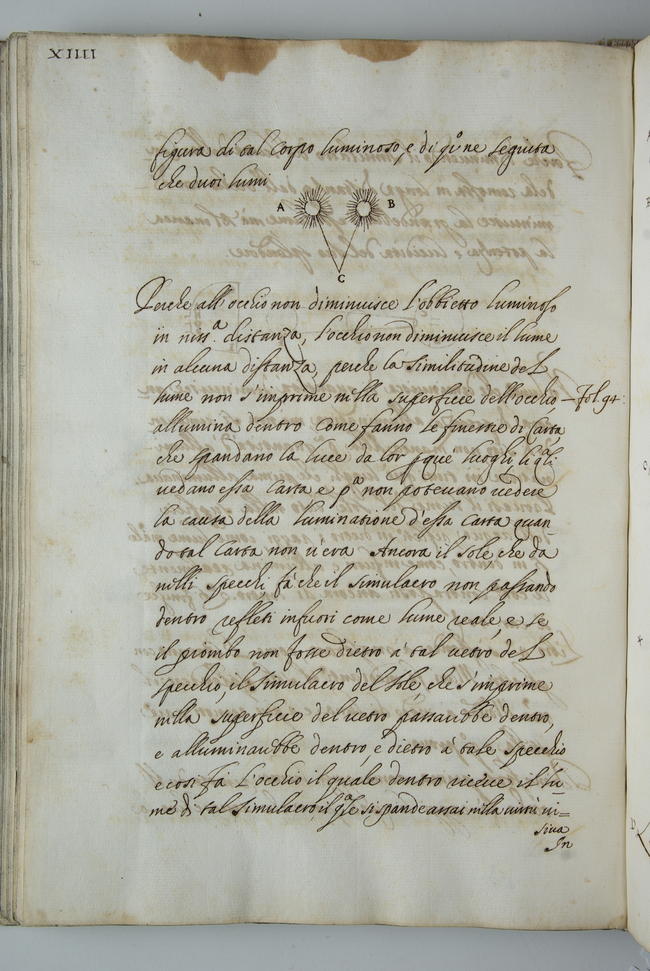 XIIII
figura di tal corpo luminoso, e di qsto ne seguita
che duoi lumi
A B
C
Perche all'occhio non diminuisce l'obbietto luminoso
in niss.a distanza, l'occhio non diminuisce il lume
in alcuna distanza, perche la similitudine del
lume non s'imprime nilla superficie dell'occhio — Fol. 94
allumina dentro come fanno le finestre di Carta
che spandano la luce da lor luoghi, li qli
vedano essa carta e pa non potevano vedere
la causa della luminatione d'essa carta quan
do tal carta non v'era Ancora il sole, che dà
nilli specchi, fà che il simulacro non passando
dentro refleti infuori come lume reale, e se
il piombo non fosse dietro à tal vetro del
specchio, il simulacro del sole che s'imprime
nilla superficie del vetro passarebbe dentro,
e alluminarebbe dentro, e dietro à tale specchio
e così fà l'occhio il quale dentro riceve il lu
me di tal simulacro, il qle si spande assai nilla virtù vi=
siva
In